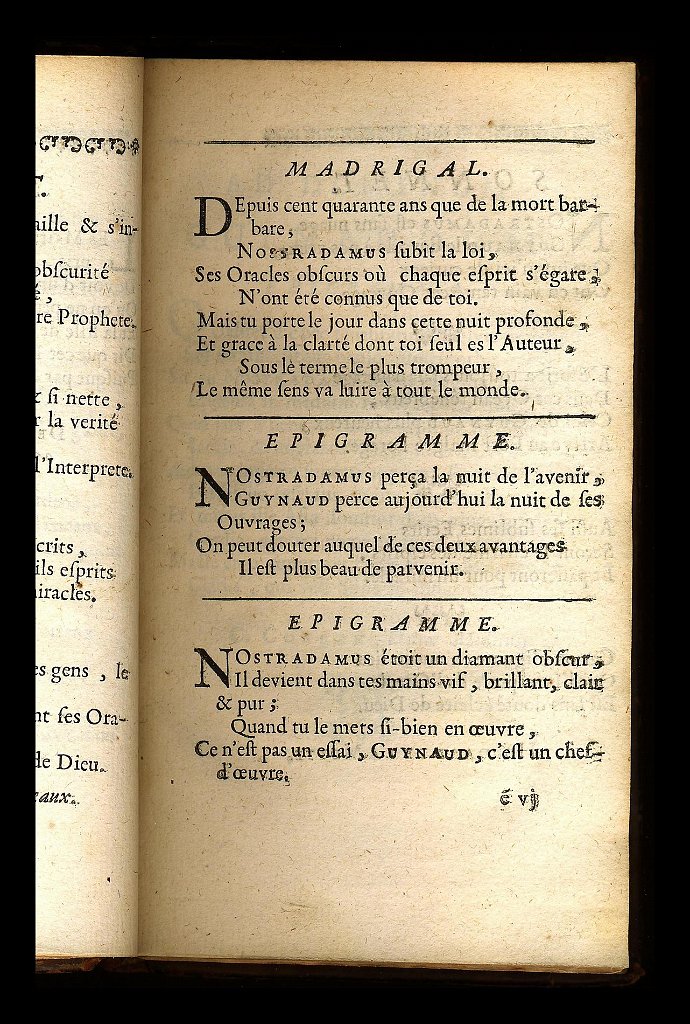 aille & s'in-
obſcurité
é,
re Prophete.
ſi nette,
r la verité
l'Interprete.
crits,
ils eſprits
iracles.
es gens, le
nt ſes Ora-
de Dieu.
eaux.
MADRIGAL.
DEpuis cent quarante ans que de la mort bar-
bare,
NOSTRADAMUS ſubit la loi,
Ses Oracles obſcurs où chaque eſprit s'égare,
N'ont été connus que de toi.
Mais tu porte le jour dans cette nuit profonde,
Et grace à la clarté dont toi ſeul es l'Auteur,
Sous le terme le plus trompeur,
Le même ſens va luire à tout le monde.
EPIGRAMME.
NOSTRADAMUS perça la nuit de l'avenir,
GUYNAUD perce aujourd'hui la nuit de ſes
Ouvrages;
On peut douter auquel de ces deux avantages
Il eſt plus beau de parvenir.
EPIGRAMME.
NOSTRADAMUS étoit un diamant obſcur,
Il devient dans tes mains vif, brillant, clair
& pur;
Quand tu le mets ſi-bien en œuvre,
Ce n'eſt pas un eſſai, GUYNAUD, c'eſt un chef-
d'œuvre.
é vj